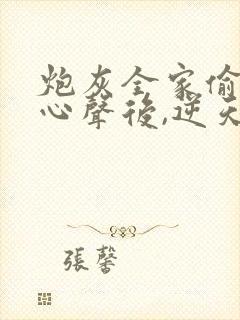 炮灰全家偷
心聲後,逆天
張馨